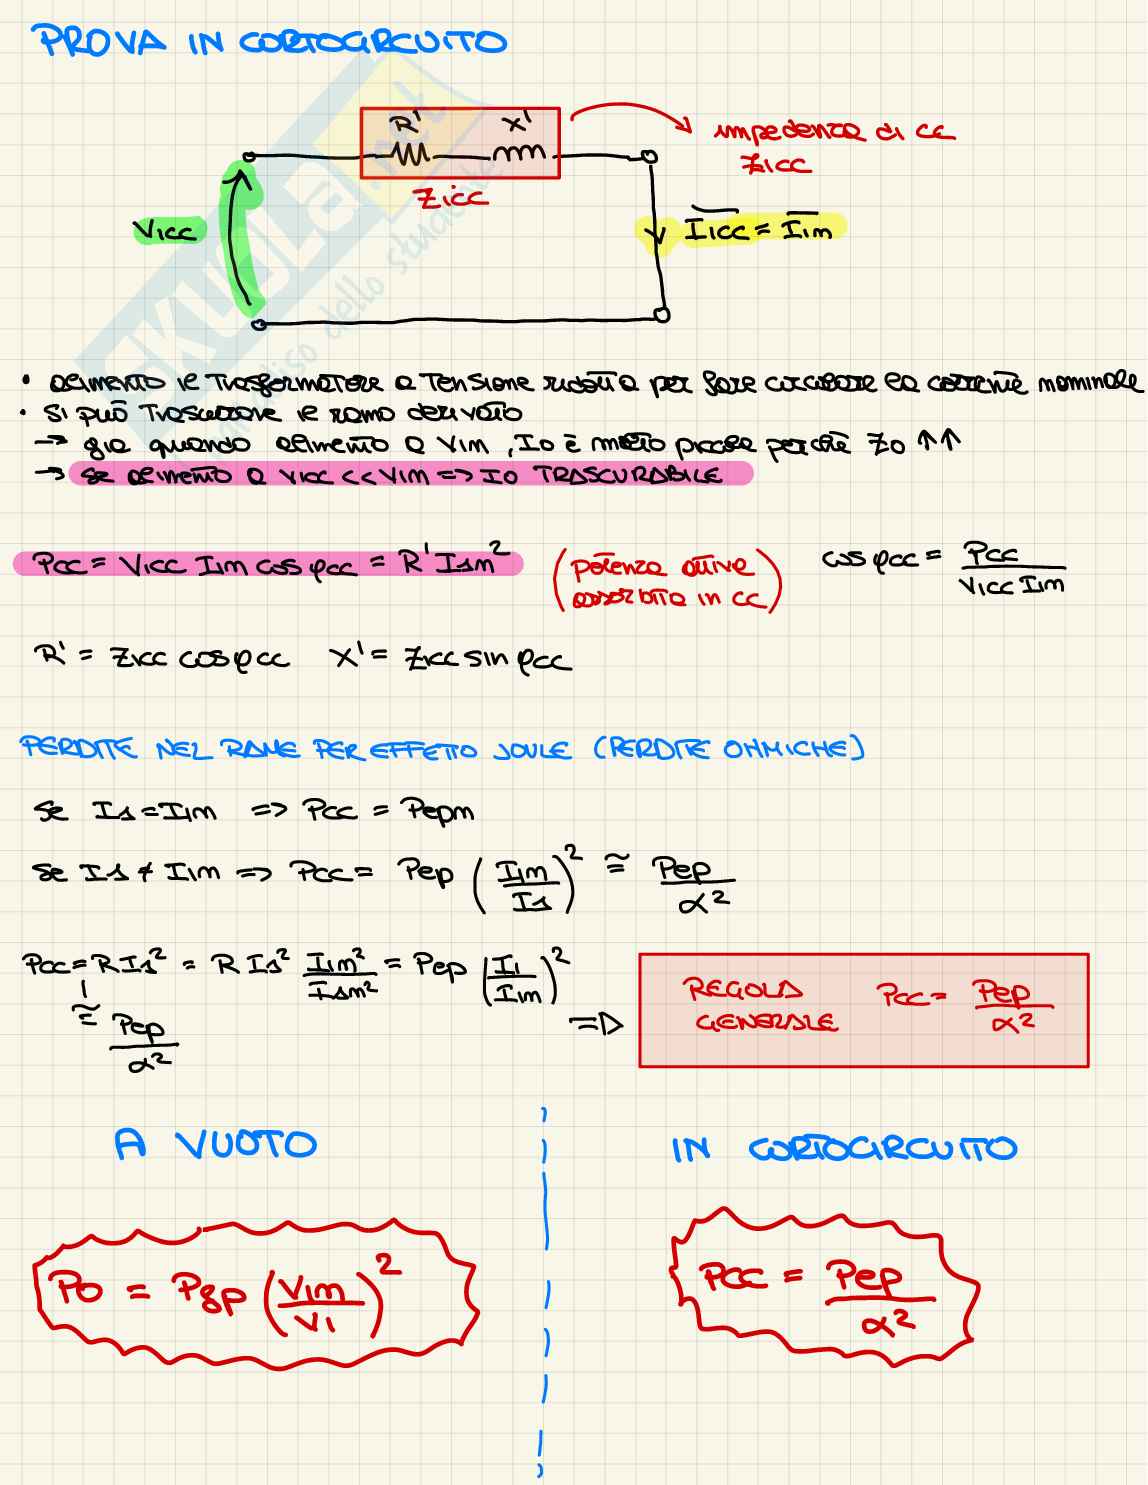 PROVA IN CORTOCIRCUITO
R' X'
Z1CC
impedenza di cc
Z1CC
V1CC
I1CC = I1m
SKUOLA.net
paradiso dello studente
• alimento il trasformatore a tensione ridotta per fare circolare la corrente nominale
• si può trascurare il ramo derivato
→ già quando alimento a V1m, I0 è molto piccola perché Z0 ↑↑
→ se alimento a V1CC << V1m => I0 TRASCURABILE
PCC = V1CC I1m cos φCC = R' I1m²
(potenza attiva assorbita in cc)
cos φCC = PCC / (V1CC I1m)
R' = Z1CC cos φCC X' = Z1CC sin φCC
PERDITE NEL RAME PER EFFETTO JOULE (PERDITE OHMICHE)
Se I1 = I1m => PCC = Pepm
Se I1 ≠ I1m => PCC = Pep (I1m / I1)² ≅ Pep / α²
PCC = R I1² = R I1² I1m² / I1m² = Pep (I1 / I1m)²
≅ Pep / α²
=> REGOLA GENERALE PCC = Pep / α²
A VUOTO
IN CORTOCIRCUITO
P0 = Pfp (V1m / V1)²
PCC = Pep / α²